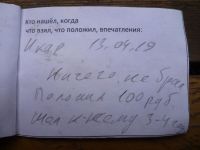 кто нашёл, когда
что взял, что положил, впечатления:
13.04.19
Ничего не брал
Положил 100 руб.
Шел к нему 3-4